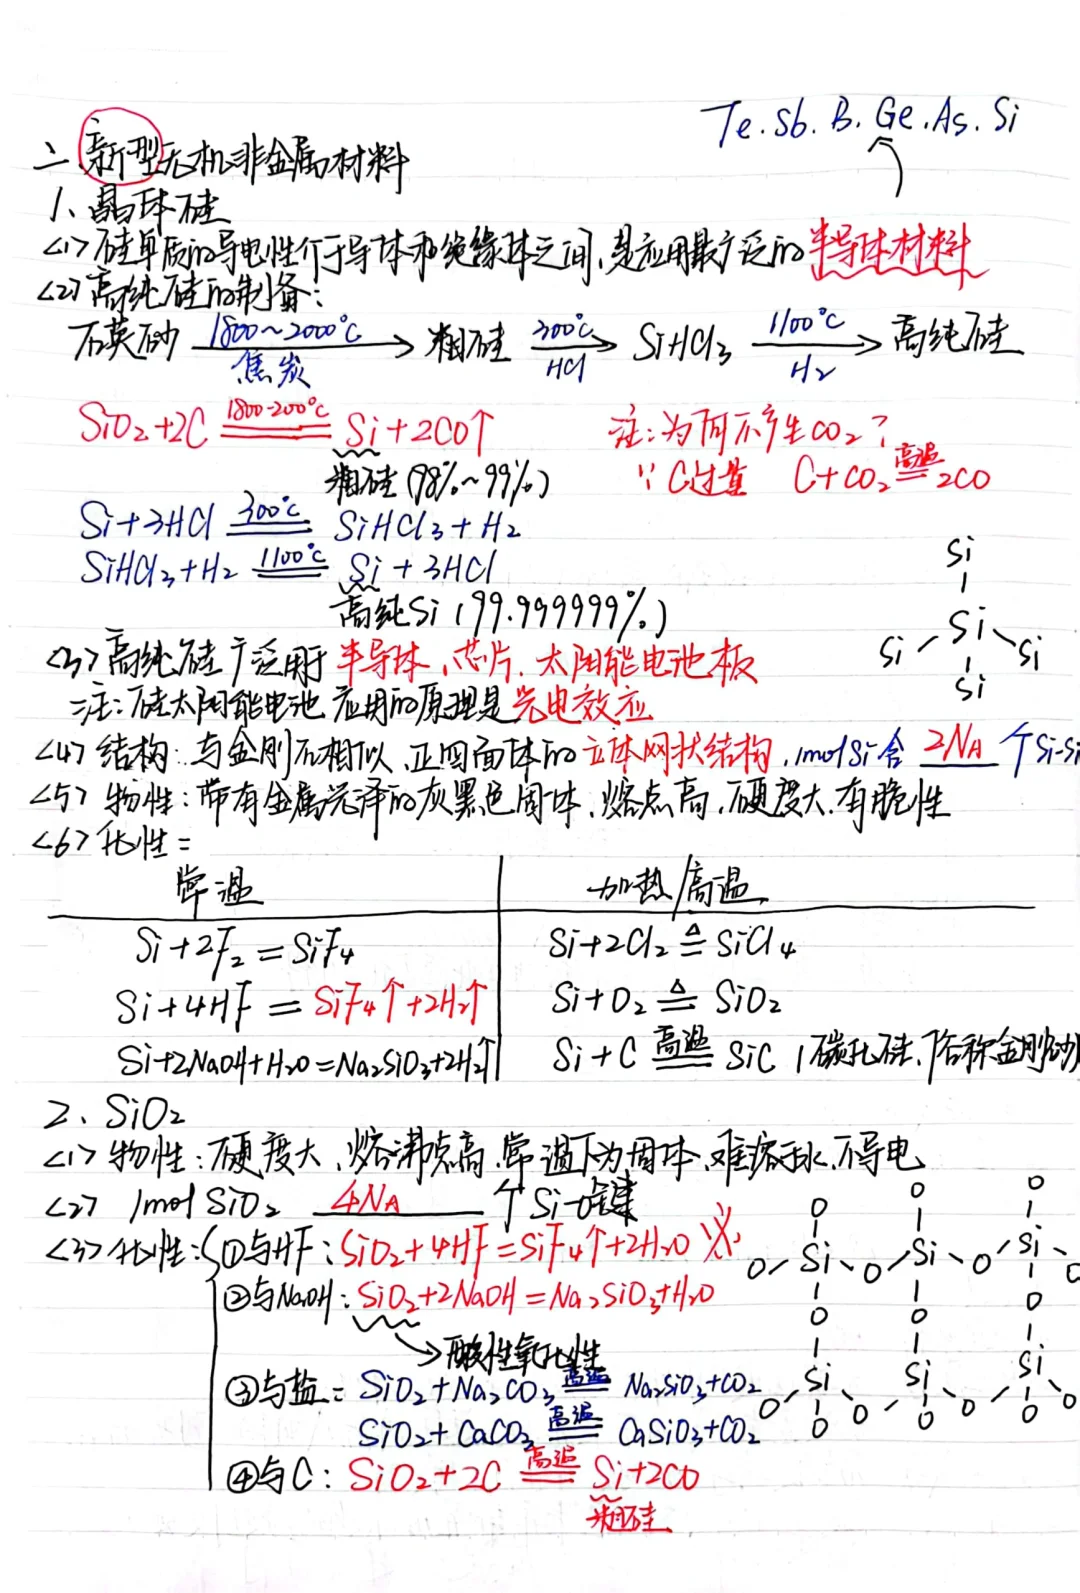 Te.Sb.B.Ge.As.Si
二.新型无机非金属材料
1、晶体硅
<1>硅单质的导电性介于导体和绝缘体之间,是应用最广泛的半导体材料
<2>高纯硅的制备:
石英砂 1800~2000℃ 焦炭 → 粗硅 300℃ HCl → SiHCl₃ 1100℃ H₂ → 高纯硅
SiO₂+2C 1800-200℃ Si+2CO↑ 注:为何不产生CO₂?
粗硅(98%~99%) ∵C过量 C+CO₂ 高温 2CO
Si+3HCl 300℃ SiHCl₃+H₂
SiHCl₃+H₂ 1100℃ Si+3HCl
高纯Si(99.999999%)
Si
Si Si Si
Si
<3>高纯硅广泛用于半导体、芯片.太阳能电池板
注:硅太阳能电池应用的原理是光电效应
<4>结构:与金刚石相似、正四面体的立体网状结构,1molSi含 2NA 个Si-Si
<5>物性:带有金属光泽的灰黑色固体、熔点高、硬度大.有脆性
<6>化性:
常温 加热/高温
Si+2F₂=SiF₄ Si+2Cl₂ △ SiCl₄
Si+4HF=SiF₄↑+2H₂↑ Si+O₂ △ SiO₂
Si+2NaOH+H₂O=Na₂SiO₃+2H₂↑ Si+C 高温 SiC(碳化硅、俗称金刚砂
2、SiO₂
<1>物性:硬度大、熔沸点高.常温下为固体.难溶于水、不导电
<2> 1mol SiO₂ 4NA 个Si-O键
<3>化性:①与HF:SiO₂+4HF=SiF₄↑+2H₂O
②与NaOH:SiO₂+2NaOH=Na₂SiO₃+H₂O
→酸性氧化性
③与盐:SiO₂+Na₂CO₃ 高温 Na₂SiO₃+CO₂
SiO₂+CaCO₃ 高温 CaSiO₃+CO₂
④与C:SiO₂+2C 高温 Si+2CO
粗硅
O O O
O Si O Si O Si O
O O O
O Si O Si O Si O
O O O